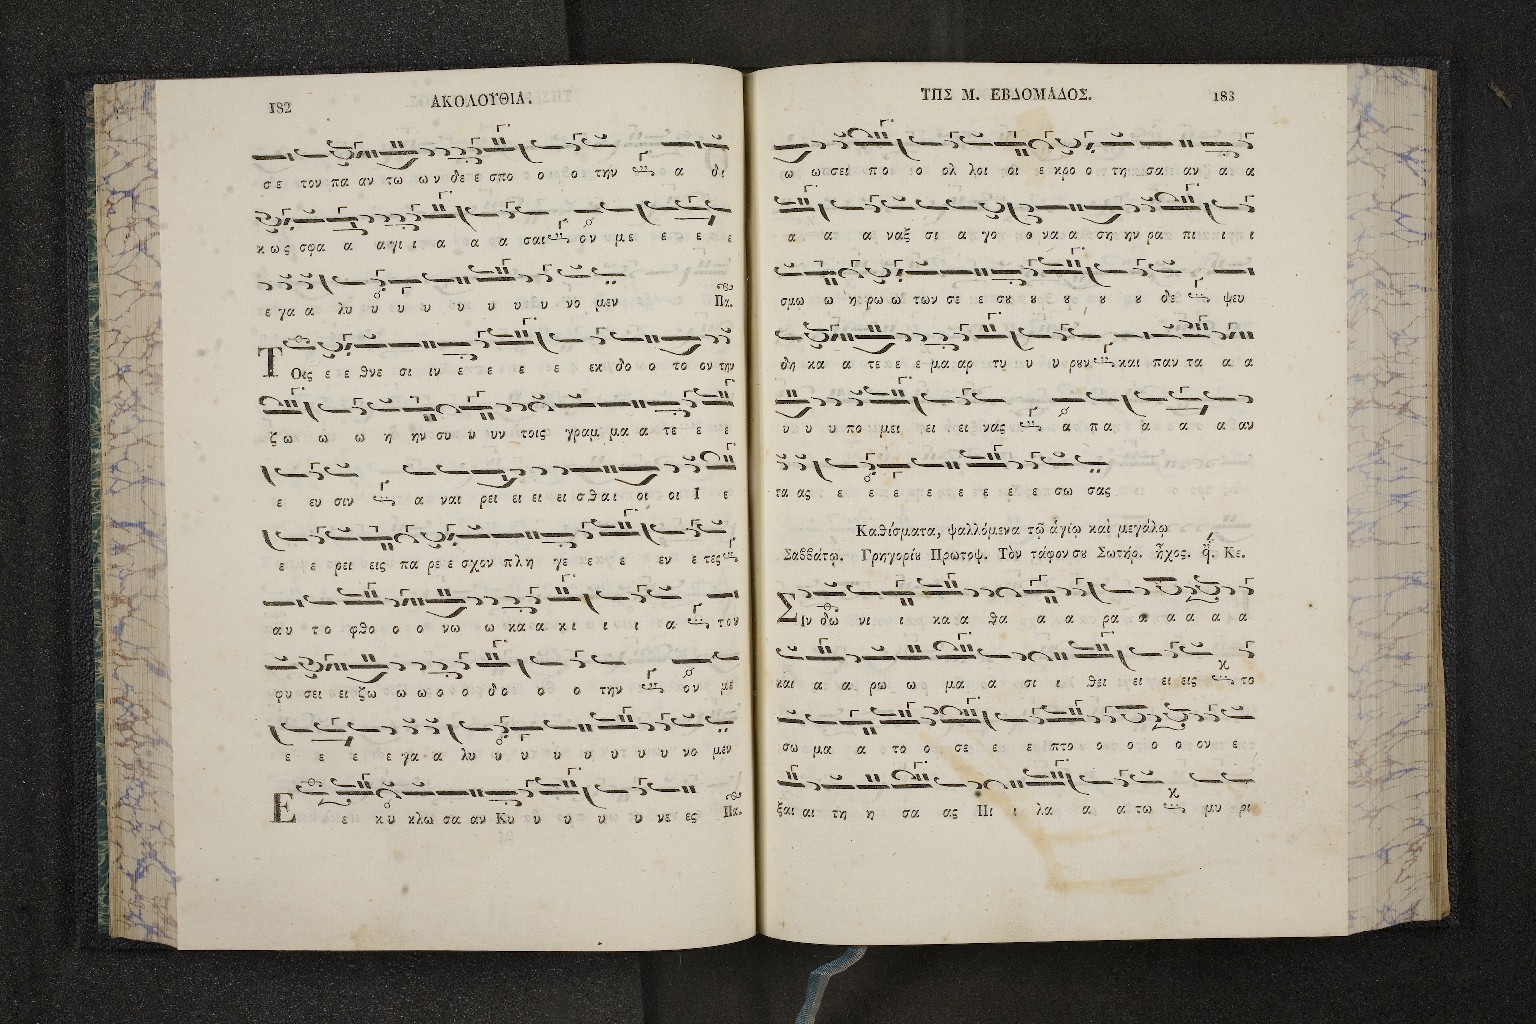 182 ΑΚΟΛΟΥΘΙΑ.
σε τον πα αν τω ων δε ε σπο ο ο ο την α δι
κως σφα α αγι ι α α α σαι ον με ε ε ε
ε γα α λυ υ υ υ υ υ υ υ νο μεν Πλ.
Τοις ε ε θνε σι ιν ε ε ε ε εκ δο ο το ον την
ζω ω ω η ην συ υ υν τοις γραμ μα α τε ε ε
ε ευ σιν α ναι ρει ει ει ει σθαι οι οι Ι ε
ε ε ρει εις πα ρε ε σχον πλη γε ε ε εν ε τες
αυ το φθο ο ο νω ω κα α κι ι ι α τον
φυ σει ει ζω ω ω ο ο δο ο ο την ον με
ε ε ε ε γα α λυ υ υ υ υ υ υ υ νο μεν
Ε ε κυ κλω σα αν Κυ υ υ υ υ νε ες Πλ.
ΤΗΣ Μ. ΕΒΔΟΜΑΔΟΣ. 183
ω ω σει πο ο ολ λοι οι ε κρο ο τη σα αν α α
α α α ναξ σι α γο ο να α ση ην ρα πι ι ι
σμω ω η ρω ω των σε ε σȣ ȣ ȣ ȣ ȣ δε ψευ
δη κα α τε ε ε μα αρ τυ υ υ ρȣν και παν τα α α
υ υ υ πο μει ει ει νας α πα α α α αν
τα ας ε ε ε ε ε ε ε σω σας
Καθίσματα, ψαλλόμενα τῷ ἁγίῳ καὶ μεγάλῳ
Σαββάτῳ. Γρηγορίȣ Πρωτοψ. Τὸν τάφον σȣ Σωτήρ. ἦχος. Κε.
Σιν δω νι ι κα α θα α α ρα α α α α
και α α ρω ω μα α σι ι θει ει ει ει εις το
σω μα α το ο σε ε ε πτο ο ο ο ο ον ε
ξαι αι τη η σα ας Πι ι λα α α τω μυ ρι